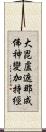 大毘盧遮那成
佛神變加持經